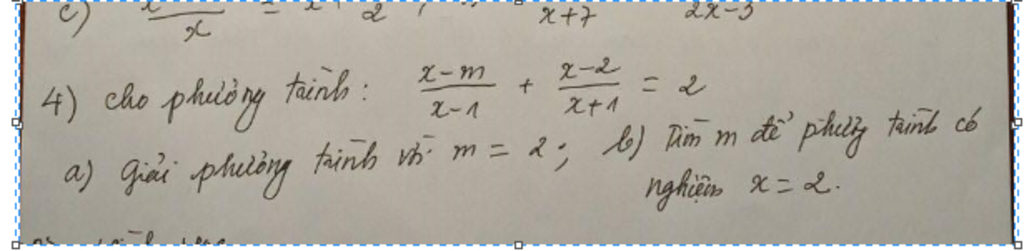 c) x = x + 2 ; x+7 2x-3
4) cho phương trình: \frac{x-m}{x-1} + \frac{x-2}{x+1} = 2
a) Giải phương trình với m = 2; b) Tìm m để phương trình có
nghiệm x = 2.